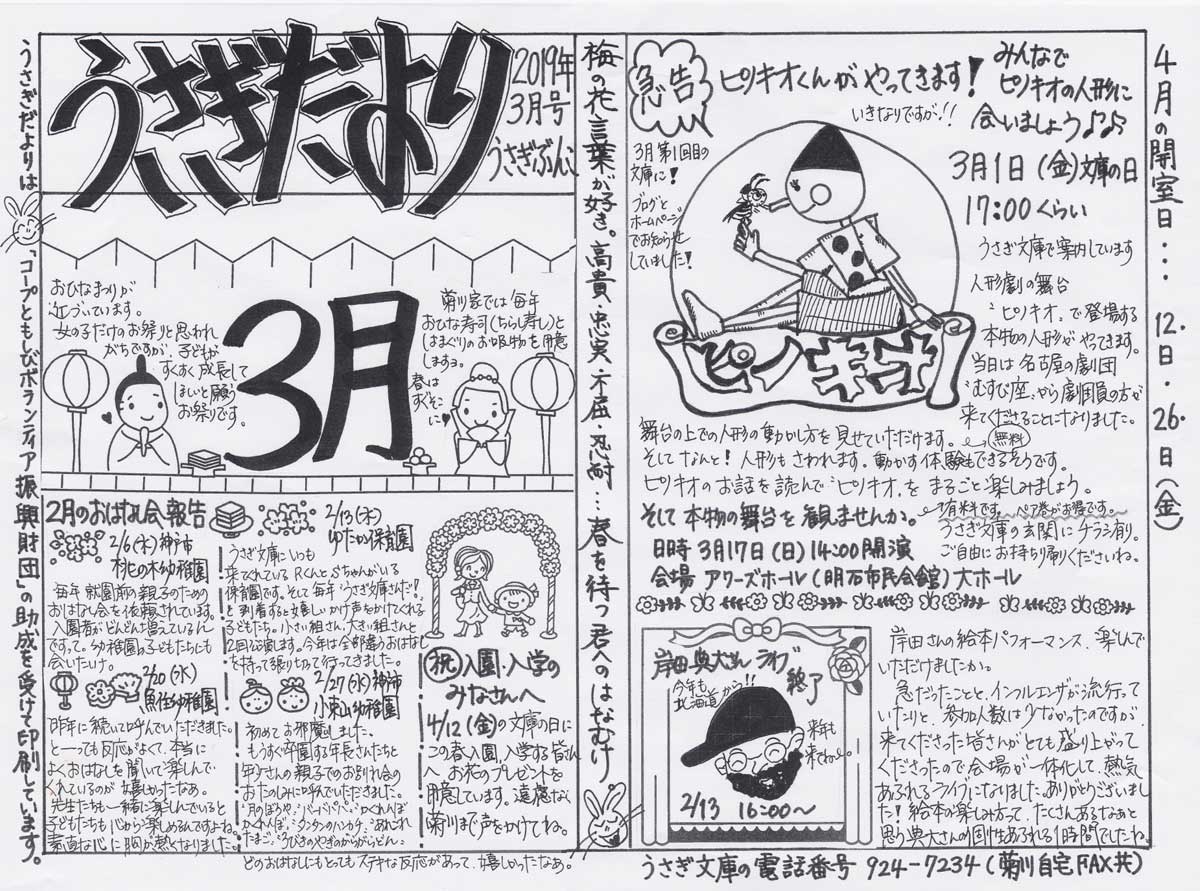 うさぎだより
2019年
3月号
うさぎぶんこ
うさぎだよりは「コープともしびボランティア振興財団」の助成を受けて印刷しています。
おひなまつりが
近づいています。
女の子だけのお祭りと思われ
がちですが、子どもが
すくすく成長して
ほしいと願う
お祭りです。
3月
菊川家では毎年
おひな寿司(ちらし寿し)と
はまぐりのお吸物を用意
しますョ。
春は
すぐそこ
に
2月のおはなし会報告
2/6(水)神戸市
桃の木幼稚園
毎年就園前の親子のための
おはなし会を依頼されています。
入園者がどんどん増えているん
ですって。幼稚園の子どもたちにも
会いたいけ。
2/20(水)
魚住幼稚園
昨年に続いて呼んでいただきました。
と一っても反応がよくて、本当に
よくおはなしを聞いて楽しんで
くれているのが嬉しかったなあ。
先生たちも一緒に楽しんでいると
子どもたちも心から楽しめるんですよね。
素直な心に胸が熱くなりました。
2/13(水)
ゆたか保育園
うさぎ文庫にいつも
来てくれているRくんとSちゃんがいる
保育園です。そして毎年“うさぎ文庫さんだ!”
を到着すると嬉しいかけ声をかけてくれる
子どもたち。小さい組さん、大きい組さんと
2回公演します。今年は全部違うおはなし
を持って張り切って行ってきました。
2/27(水)神戸市
小束山幼稚園
初めてお邪魔しました。
もうすぐ卒園する年長さんたちと
年少さんの親子でのお別れ会の
おたのしみに呼んでいただきました。
“月のぼうや”“かくれんぼ
かくれんぼ”“タンタンのハンカチ”“あれこれ
たまご”“3びきのやぎのがらがらどん”
どのおはなしにもとってもステキな反応があって、嬉しかったなあ。
祝 入園・入学の
みなさんへ
4/12(金)の文庫の日に
この春入園、入学する皆さん
へ お花のプレゼントを
用意しています。遠慮なく
菊川まで声をかけてね。
梅の花言葉が好き。高貴・忠実・不屈・忍耐…春を待つ君へのはなむけ
急告
ピノキオくんがやってきます!
いきなりですが!!
みんなで
ピノキオの人形に
会いましょう♪♪
3月第1回目の
文庫に!
ブログと
ホームページ
でお知らせ
していました!
3月1日(金)文庫の日
17:00くらい
うさぎ文庫で案内しています
人形劇の舞台
“ピノキオ”で登場する
本物の人形がやってきます。
当日は名古屋の劇団
“むすび座”から劇団員の方が
来てくださることになりました。
ピノキオ
無料
舞台の上での人形の動かし方を見せていただけます。
そしてなんと!人形もさわれます。動かす体験もできるそうです。
ピノキオのお話を読んで“ピノキオ”をまるごと楽しみましょう。
そして本物の舞台を観ませんか。
有料です。ペア券がお得です。
うさぎ文庫の玄関にチラシ有り。
ご自由にお持ち帰りくださいね。
日時 3月17日(日)14:00開演
会場 アワーズホール(明石市民会館)大ホール
岸田典大さんライブ
終了
今年も
北海道から!!
来年も
来てね〜。
2/13 16:00〜
岸田さんの絵本パフォーマンス、楽しんで
いただけましたか。
急だったことと、インフルエンザが流行って
いたりと、参加人数は少なかったのですが、
来てくださった皆さんがとても盛り上がって
くださったので会場が一体化して、熱気
あふれるライブになりました。ありがとうございまし
た!絵本の楽しみ方って、たくさんあるなあと
思う典大さんの個性あふれる1時間でしたね。
うさぎ文庫の電話番号 924-7234(菊川自宅FAX共)
4月の開室日… 12日・26日(金)